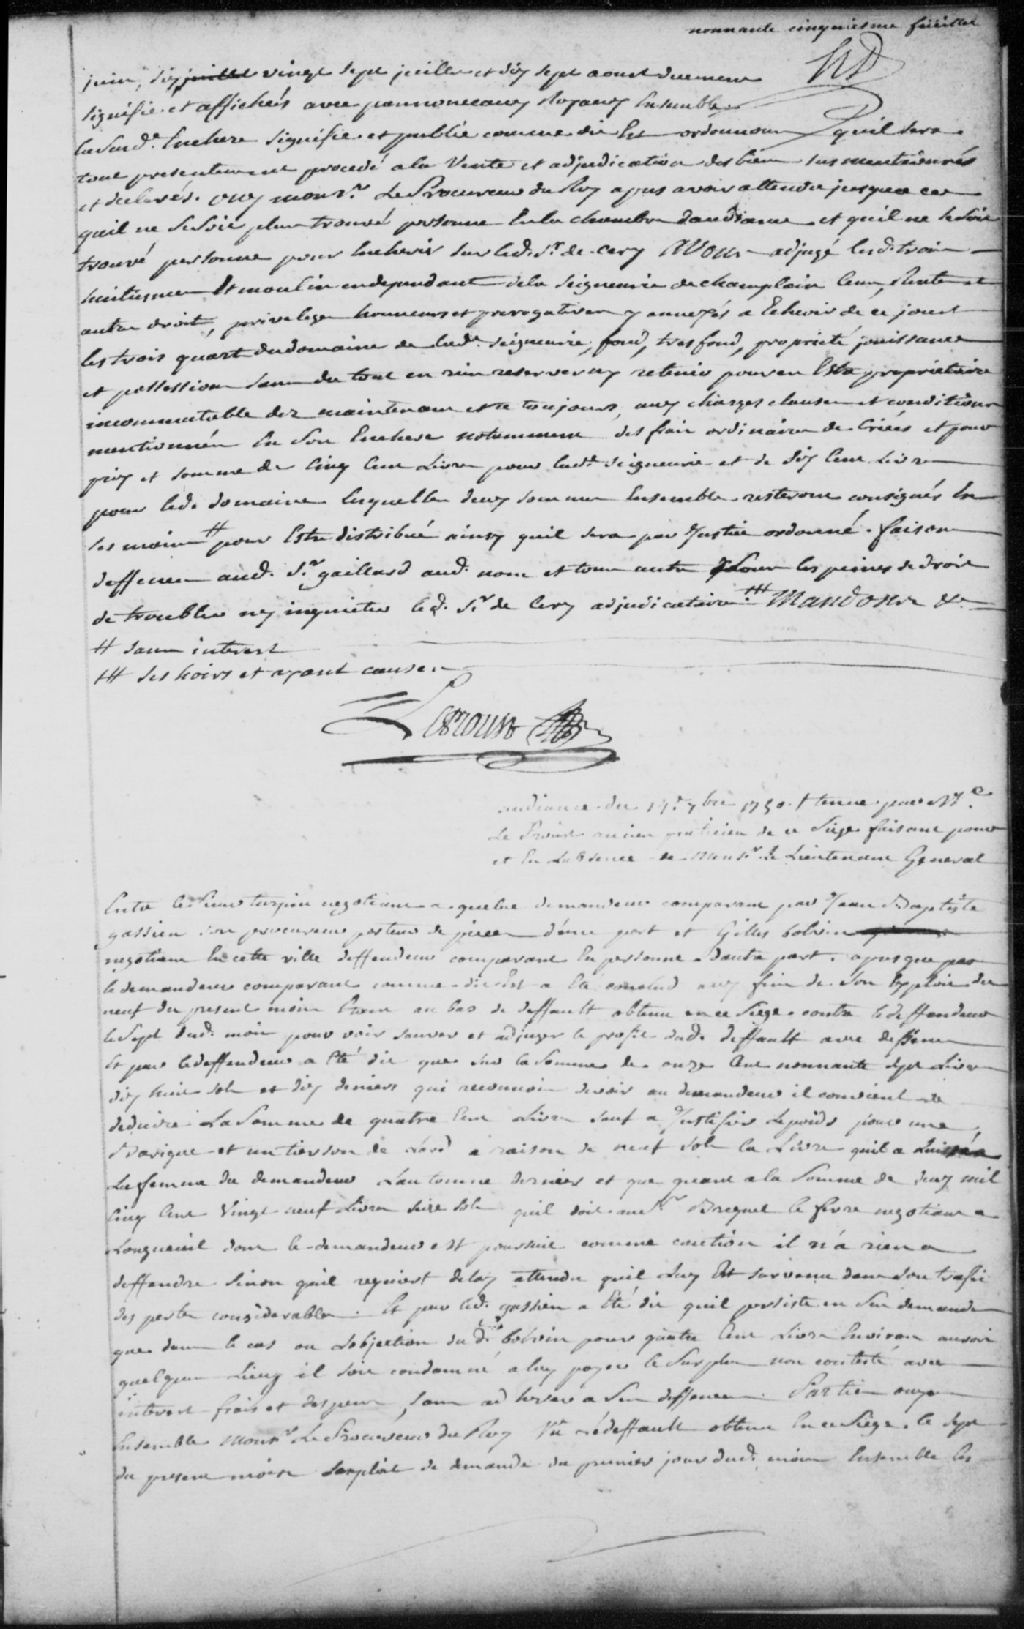 nonnante cinquiesme feüillet
juin, dix juillet vingt sept juillet et dix sept aoust duement
signifié et affichées avec pannonceaux Royaux Ensemble
la surd. Enchere signifié et publié comme dit Est ordonnons quil sera
tout presentement procedé a la Vente et adjudication des biens sus mentionnés
et declarés. ouy monsr. Le Procureur du Roy apres avoir attendu jusques a ce
quil ne se soit plus trouvé personne En la chambre daudiance et quil ne se soit
trouvé personne pour Encherir sur led. Sr. de Cery Avons adjugé lesd. trois
huitiesmes Et moulin en dependant de la Seigneurie de champlain Cens, Rentes et
autres droits, privileges honneurs et prerogatives y annexés a Echeoir de ce jour Et
les trois quart du domaine de lad. seigneurie, fond, tresfond, proprieté jouissance
et possession sans du tout en rien reserver ny retenir pour en Estre proprietaire
incommutable dez maintenant et a toujours, aux charges clauses et conditions
mentionnées En son Enchere notamment des frais ordinaires de Criées et pour
prix et somme de Cinq Cent Livres pour lad. Seigneurie et de dix Cent Livres
pour led. domaine lesquelles deux sommes Ensemble resteront consignés En
ses mains # pour Estre distribué ainsy quil sera par Justice ordonné. faisons
deffences aud. Sr. gaillard aud. nom et tous autres sous les peines de droit
de troubler ny inquieter led. Sr. de Cery adjudicataire ### Mandons &c.
# sans interest
### ses hoirs et ayant causes
audiance du 7bre 1730 tenue par Me.
Le Proust ancien praticien de ce Siege faisant pour
et En Labsence de monsr. Le Lieutenant General
Entre le Sieur turpin negotiant a quebec demandeur comparant par Jean Baptiste
gassien son procureur porteur de pieces d'une part et Gilles bolvin
negotiant En cette ville deffendeur comparant En personne Dautre part. apres que par
le demandeur comparant comme dit Est a Eté conclud aux fins de son Exploit du
neuf du present mois Etant au bas de deffault obtenu en ce Siege contre le deffendeur
le Sept dud. mois pour voir sauver et adjuger le profit dud. deffault avec depens
Et par le deffendeur a Eté dit que sur la Somme de onze Cent nonnante sept Livres
dix huit sols et dix deniers qui reconnoit devoir au demandeur il convient de
deduire La Somme de quatre Cent Livres sauf a Justifier le poids pour une
Barique et un tierson de Lard a raison de neuf sols la Livre quil a Livrées
La femme du demandeur Lautomne dernier et que quant a la Somme de deux mil
Cinq Cent Vingt neuf Livres seize sols quil doit Breguet le fevre negotiant a
Longueuil dont le demandeur est poursuit comme caution il n'a rien a
deffendre sinon quil requiert delay attendu quil Luy Est survenu dans son trafic
des pertes considerables. Et par led. gassien a Eté dit quil persiste en Sa demande
que dans le cas ou Lobjection dud. bolvin pour quatre Cent Livres Environ auroit
quelques Lieux il soit condamné a luy payer le Surplus non contesté avec
interest frais et depens, sans ad herer a Ses deffences. Parties ouyes
Ensemble monsr. Le Procureur du Roy Vu le deffault obtenu En ce Siege le Sept
du present mois Lexploit de demande du premier jour dud. mois Ensemble les